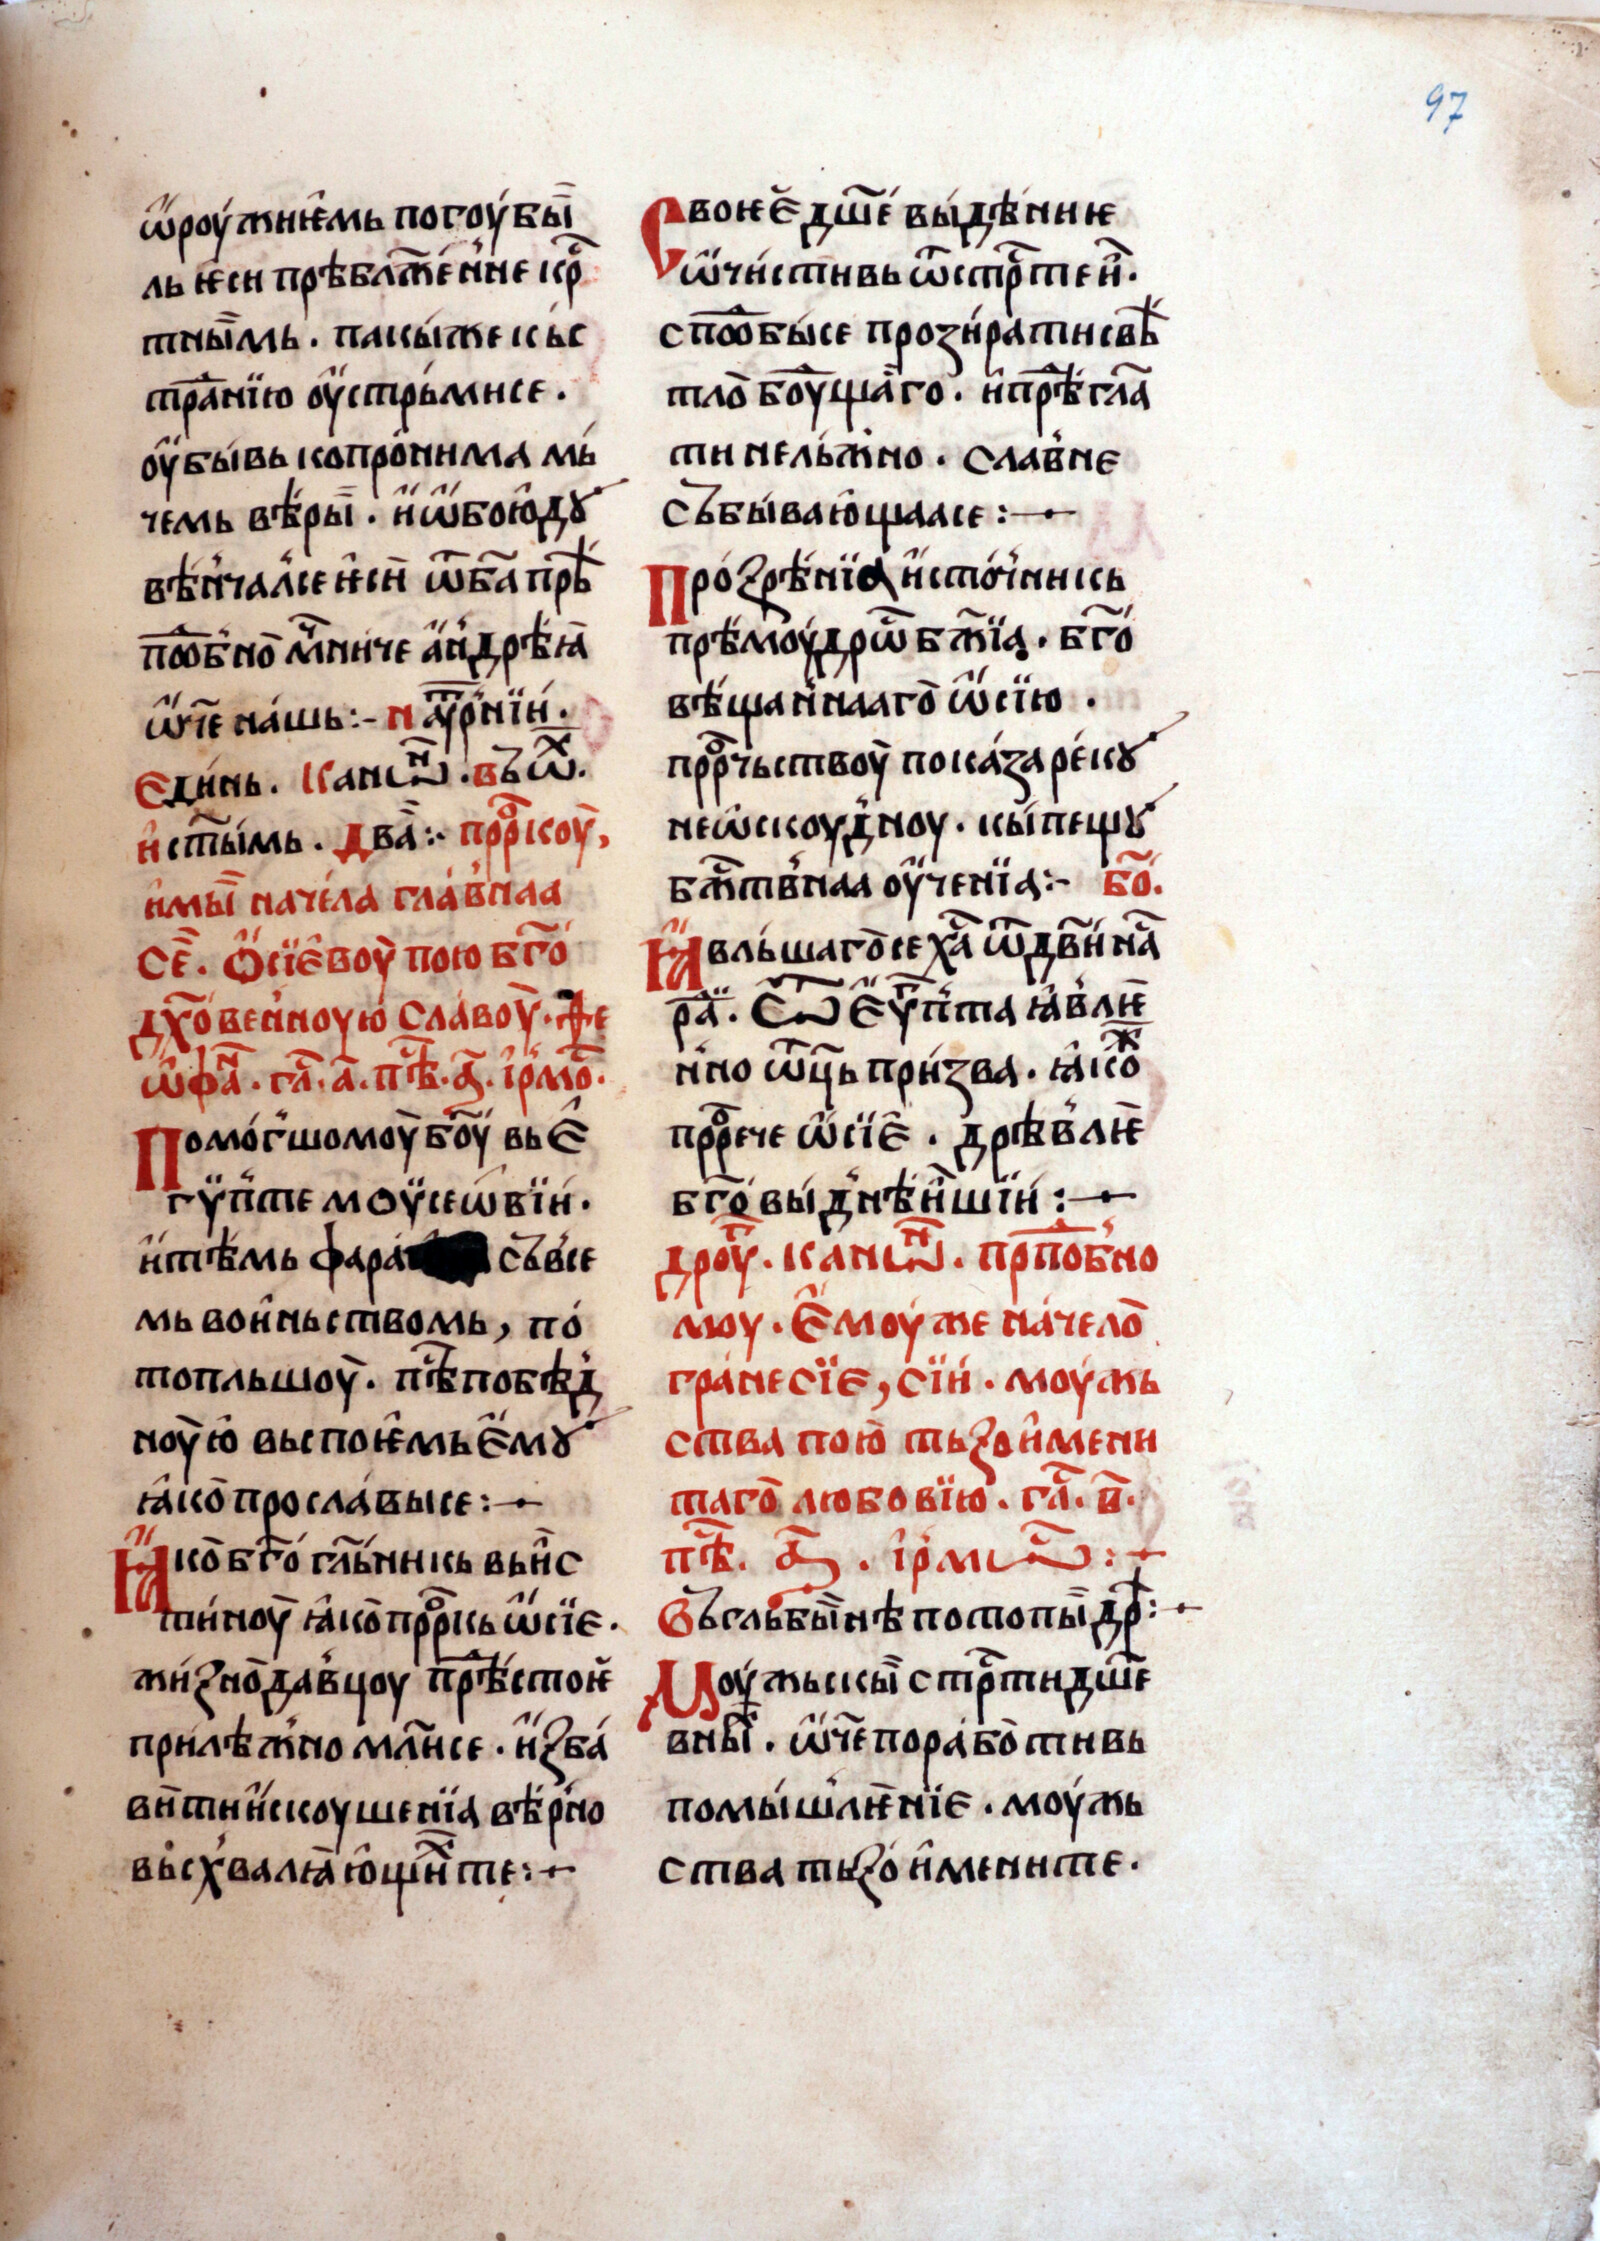 97
ѡ҆роу́жиѥ҆мь погоуби̏
ль ѥси прѣблже́нне кр̑
тныи̏мь. пакыже къс
тра́нїю оу҆стрьмисе.
оу҆бывь копро́нима мь́
чемь вѣ́ры̏. и҆ѡ҆боюдꙋ
вѣнчалсе ѥ҆си̏ ѿба прѣ́
по́бно мч҃ниче а҆ндрѣꙗ
ѡ҆ч҃е на́шь:- на оу҆трьнїи́.
Еди́нь. Канѡⷩ. въѡ̑х.
и҆ст҃ы́мь. Два̏:- пррⷪ҇коу̏,
и҆мы̏ наче́ла гла́внаа
се̏. Ѻ҆сїе́воу̏ пою бг҃о́
дх҃о́веⷩноую сла́воу̏. Ѳе
ѡ҆фаⷩ. гл҃а. а҃. пѣⷭ. а҃. і҆рмо̑.
Помо́гшомоу̏ бг҃оу вь е҆
гѵ́пте моѵсеѡ҆вїи́.
и҆тѣ́мь фара съ́все
мь вои́ньствомь, по́
топльшоу̏. пѣⷭпобѣ́д
ноу̏ю вьспоѥ҆мь е҆мꙋ
ꙗ҆ко̏ просла́высе:-
Ꙗ҆ко̏ бг҃о́ гл҃ь́никь вьи́с
ти́ноу̏ ꙗ҆ко̏ прⷪ҇ркь ѡ҆сїе.
жи́знода́вцоу прѣⷣстоѥ
при́лѣ́жно мл҃исе. и҆зба́
ви́ти и҆скоушенїа вѣ́рно
вьсх́валꙗ́ю҆щⷯите:-
Своѥ҆е дш҃е́ вы́дѣ́ниѥ
ѡ҆чи́стивь ѿстрⷭте́и.
спⷣобысе прози́рати свѣ́
тло̏ боуⷣща́го. и҆прѣⷣгла̑
ти не́льжно. славне
събываю҆щаасе:-
Прозрѣ́нїа и҆сто́чникь
прѣ́моу́дрⷭѡ бж҃їа. бг҃о́
вѣ́ща́ннааго̏ ѡ҆сїю.
прⷪ҇рчьствоу̏ пока́зарѣ́кꙋ
неѡ҆скоу́дноу. кы́пещꙋ
бжⷭтвнаа оу҆че́нїа:- бо̑.
Ꙗ҆вльшагосе ха̑ ѿдв҃и на̑
ра̑. Ѿ Е҆гѵ́пта ꙗ҆влѥ
нно ѿц҃ь при́зва. ꙗ҆кож
прⷪ҇рече ѡ҆сїе. дрѣ́влѥ
бг҃о́вы́днѣ́и̏шїи́:-
дроуⷢ. канѡⷩ. прпⷣо́бно
моу. Е҆моу́же наче́ло̏
гра́не сїе, сїи́. моу́жь
ства пою̏ тьзои҆мени
таго̏ любовїю. гл҃а. и҃.
пѣⷭ. а҃. і҆рмѡⷭ:-
Въ́гльбы̏нѣ потопы̏ дрѣ́:-
Моу́жьскы̏ стрⷭти дш҃е
вны̏ⷨ. ѡ҆ч҃е пора́бо́тивь
помы́шлѥнїе. моу́жь
ства тьзо́и҆мените.